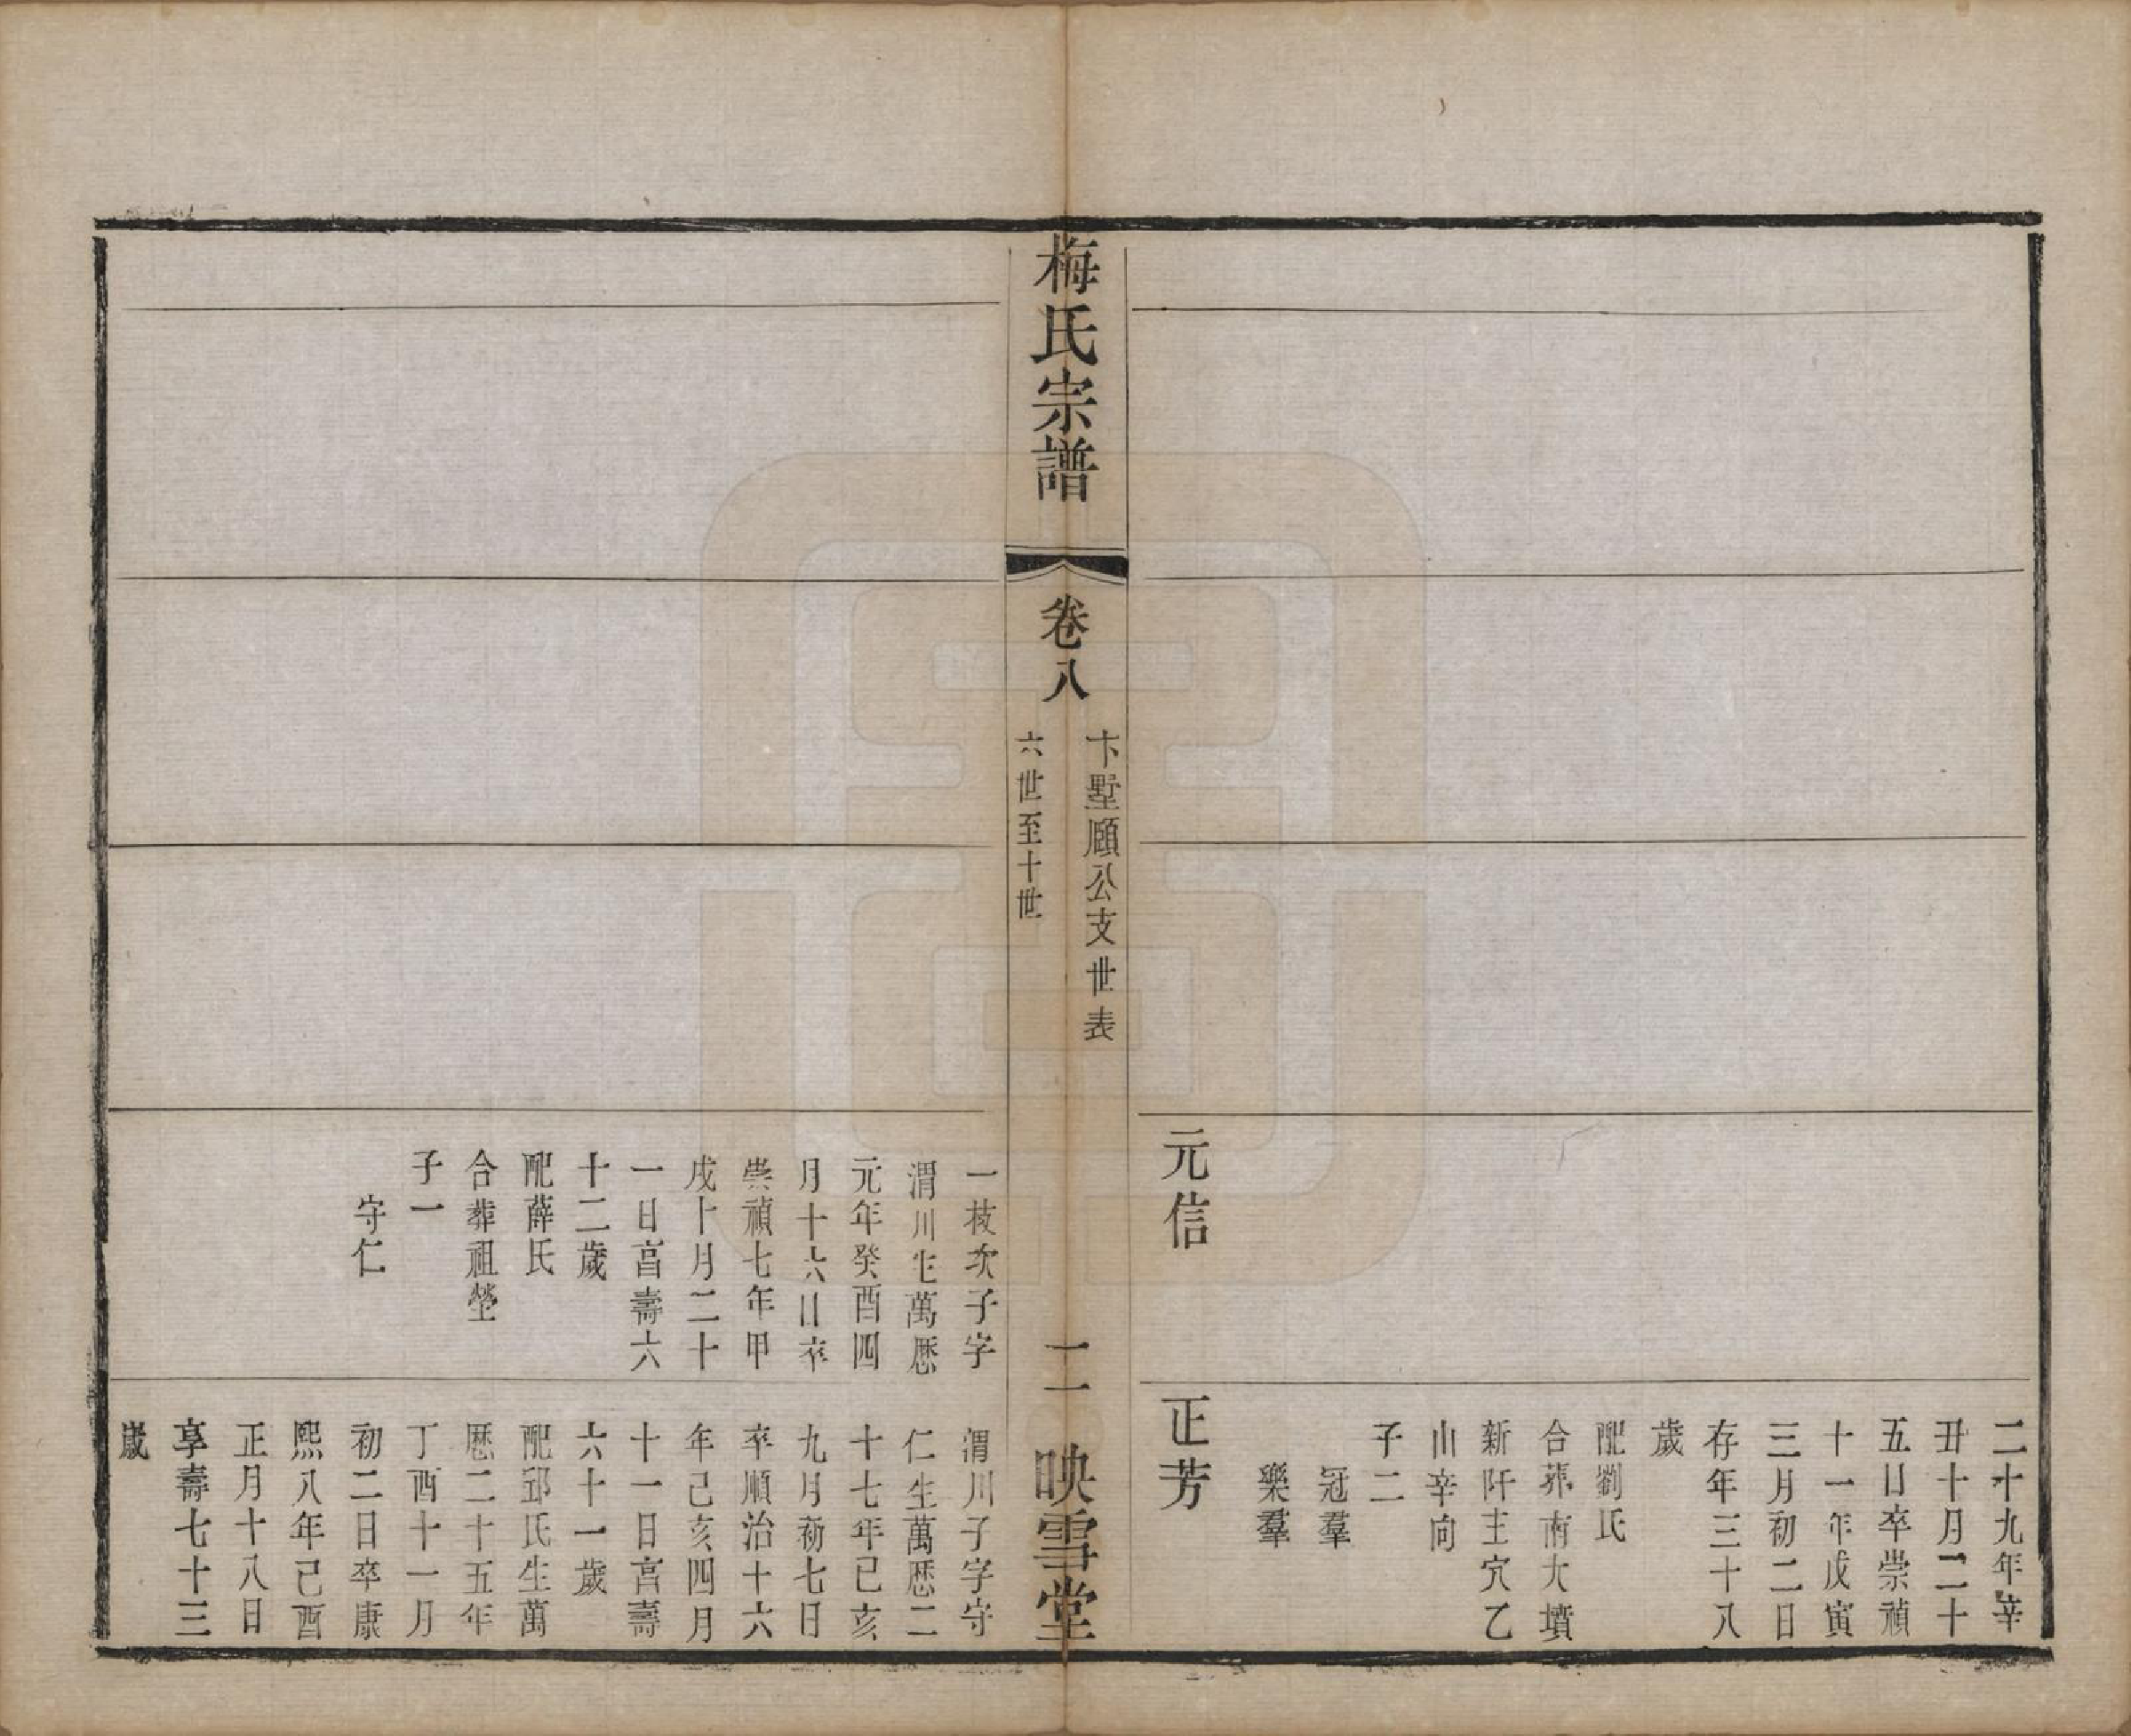 二十九年辛
丑十月二十
五日卒崇禎
十一年戊寅
三月初二日
存年三十八
歲
配劉氏
合葬南大墳
新阡主穴乙
山辛向
子二
冠羣
樂羣
元信
正芳
梅氏宗譜
卷八
卞墅願公支世表
六世至十世
二一
映雪堂
一枝次子字
渭川生萬曆
元年癸酉四
月十六日卒
崇禎七年甲
戌十月二十
一日享壽六
十二歲
配薛氏
合葬祖塋
子一
守仁
渭川子字守
仁生萬曆二
十七年己亥
九月初七日
卒順治十六
年己亥四月
十一日享壽
六十一歲
配邱氏生萬
曆二十五年
丁酉十一月
初二日卒康
熙八年己酉
正月十八日
享壽七十三
歲